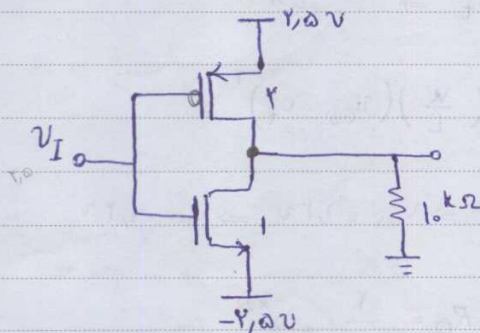 ۲,۵ v
۲
v_I
۱۰ kΩ
۱
-۲,۵ v